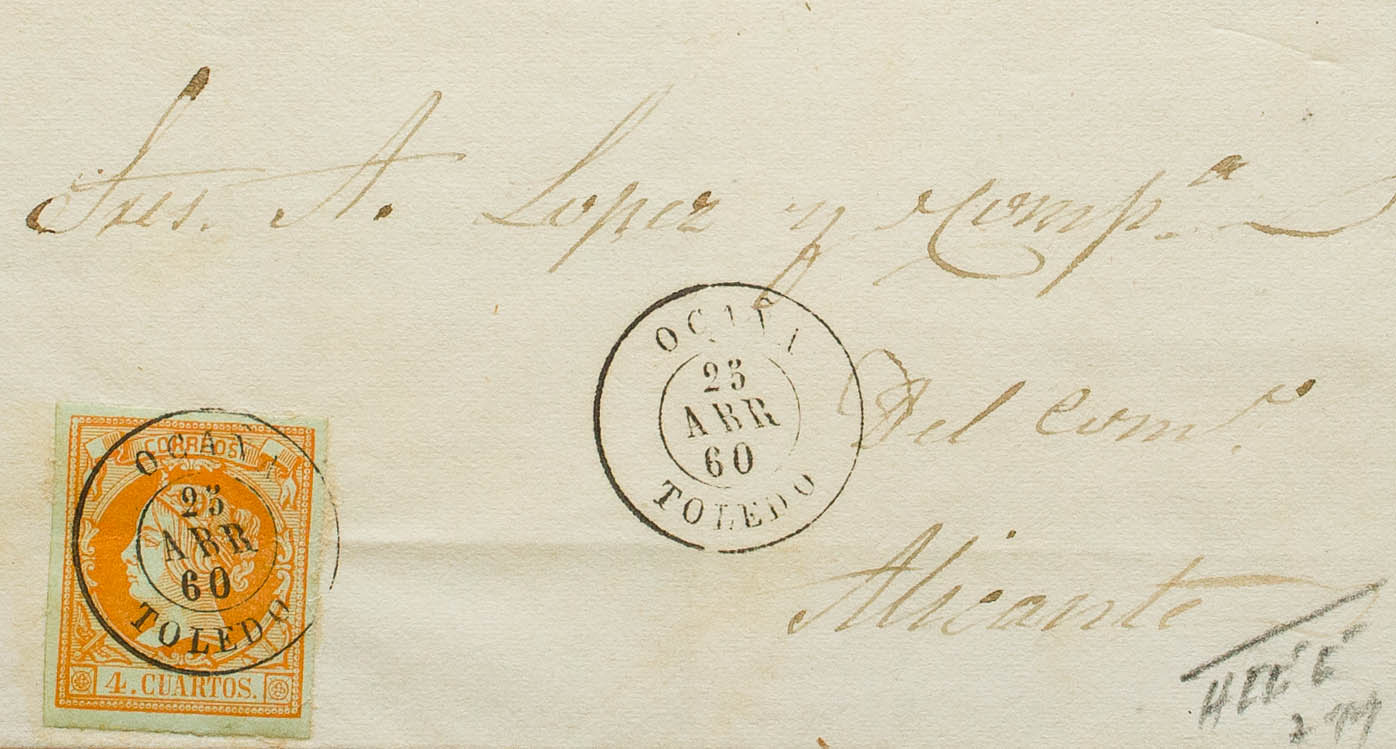 Sres. A. Lopez y Comp.ª
OCAÑA
25
ABR
60
TOLEDO
Del Com.º
Alicante
CORREOS
OCAÑA
25
ABR
60
TOLEDO
4. CUARTOS.